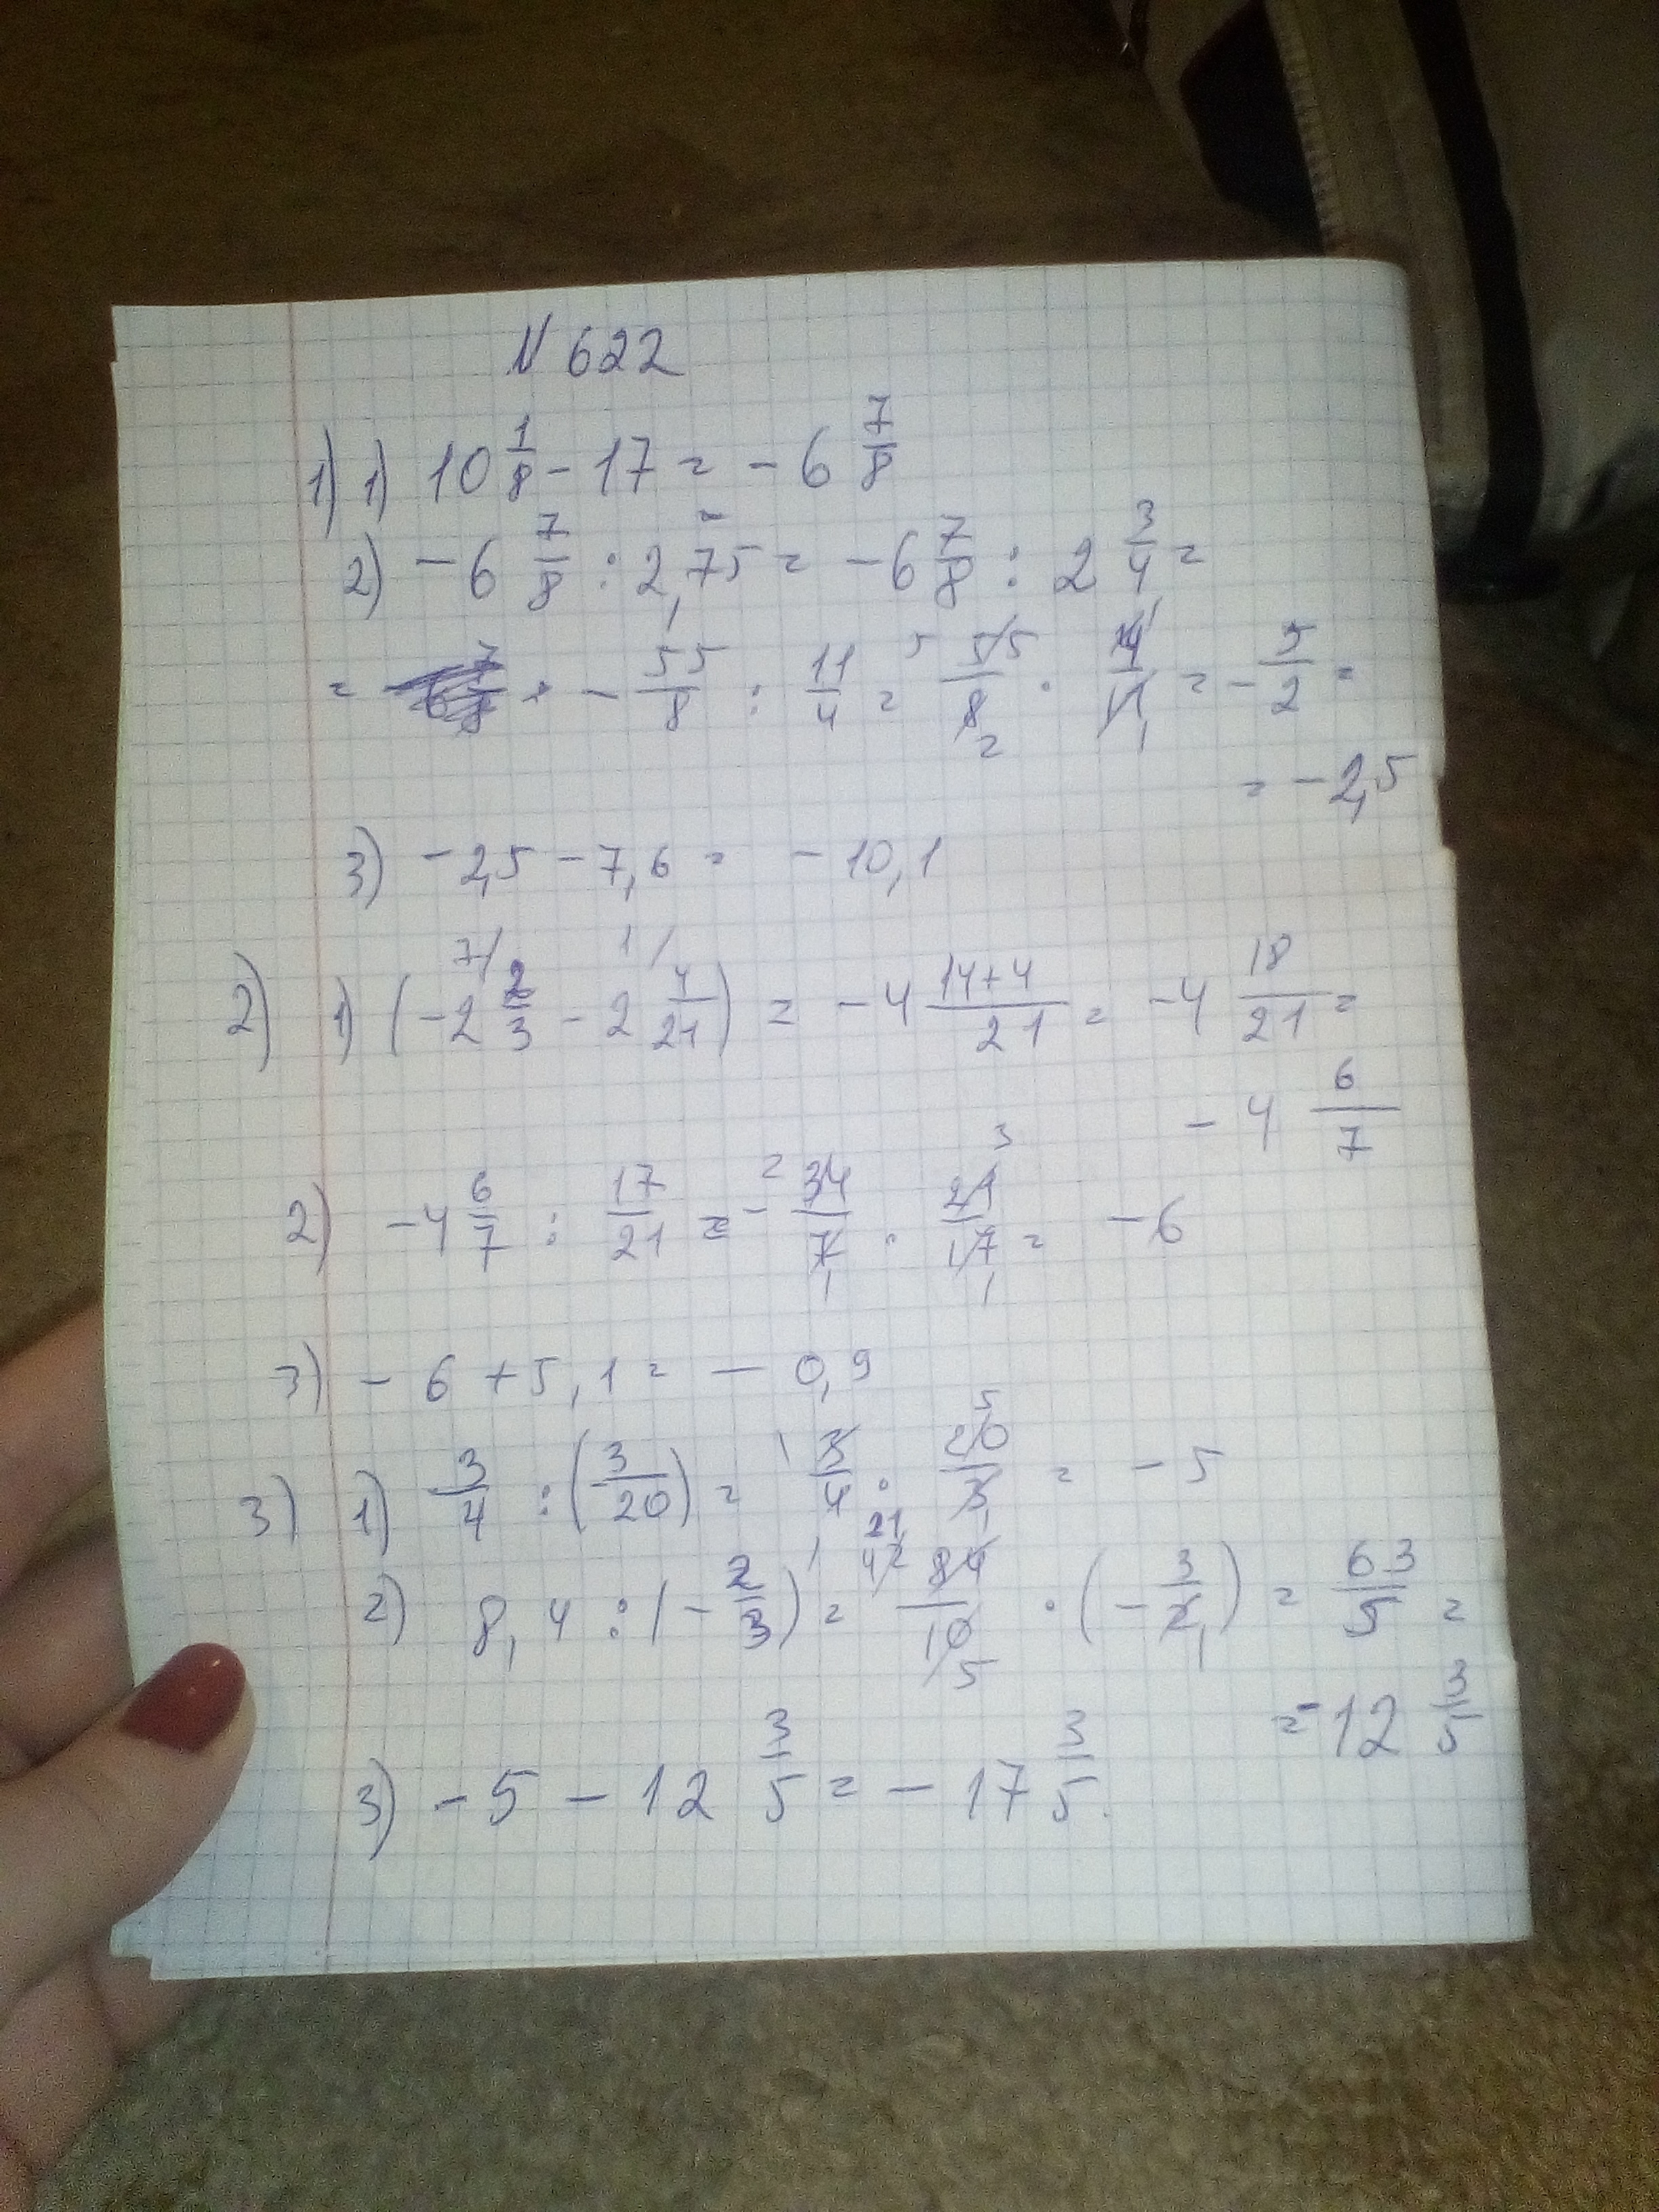 N 622
1) 1) 10 1/8 - 17 = - 6 7/8
2) - 6 7/8 : 2,75 = - 6 7/8 : 2 3/4 =
= - 55/8 : 11/4 = 55/8 · 4/11 = - 5/2 =
= - 2,5
3) - 2,5 - 7,6 = - 10,1
2) 1) (- 2 2/3 - 2 4/21) = - 4 14+4/21 = - 4 18/21 =
- 4 6/7
2) - 4 6/7 : 17/21 = - 34/7 · 21/17 = - 6
3) - 6 + 5,1 = - 0,9
3) 1) 3/4 : (- 3/20) = 3/4 · 20/3 = - 5
2) 8,4 : (- 2/3) = 84/10 · (- 3/2) = 63/5 =
= - 12 3/5
3) - 5 - 12 3/5 = - 17 3/5.